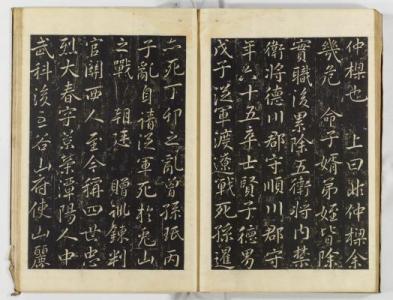 仲樑也 上曰此仲樑余
幾危 命子婿弟姪皆除
實職後累除五衛將内禁
衛將德川郡守順川郡守
年六十五卒士賢子德男
戊子從軍渡遼戰死孫暹
亦死丁卯之亂曾孫珉丙
子亂自請從軍死於兎山
之戰 朝廷 贈訓鍊判
官關西人至今稱四世忠
烈大春字景葉潭陽人中
武科後谷山府使山麗